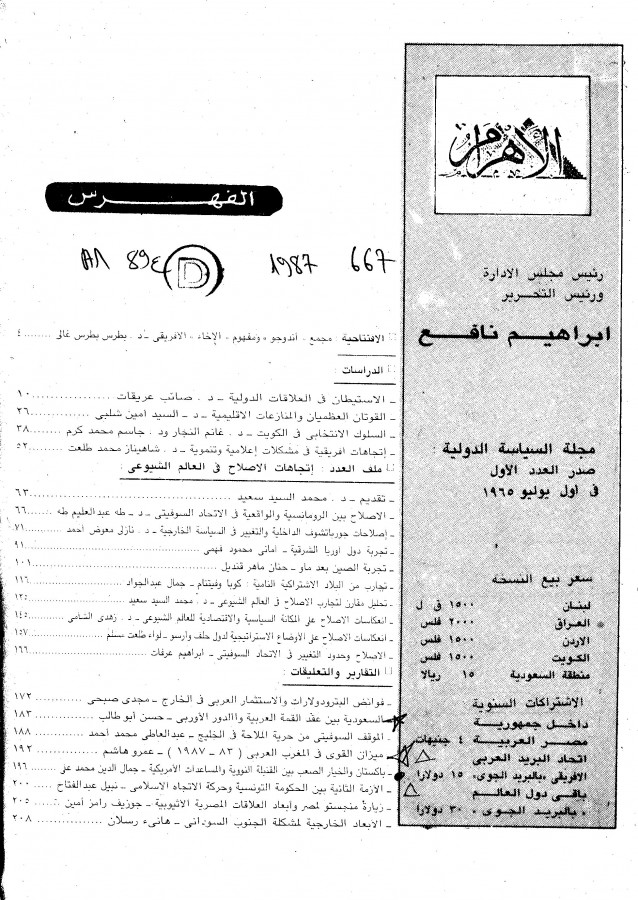 الأهرام
رئيس مجلس الادارة
ورئيس التحرير
ابراهيم نافع
مجلة السياسة الدولية :
صدر العدد الأول
فى أول يوليو ١٩٦٥
سعر بيع النسخه
لبنان ١٥٠٠ ق ل
العراق ٢٠٠٠ فلس
الاردن ١٥٠٠ فلس
الكويت ١٥٠٠ فلس
منطقة السعودية ١٥ ريالا
الاشتراكات السنوية
داخل جمهورية
مصر العربية ٤ جنيهات
اتحاد البريد العربى
الافريقى ،بالبريد الجوى، ١٥ دولارا
باقى دول العالم
،بالبريد الجوى، ٣٠ دولارا
الفهرس
667 1987 D
□ الإفتتاحية : مجمع ، أندوجو ، ومفهوم ، الإخاء ، الافريقى ـ د . بطرس بطرس غالى ........ ٤
□ الدراسات :
ـ الاستيطان فى العلاقات الدولية ـ د . صائب عريقات ........ ١٠
ـ القوتان العظميان والمنازعات الاقليمية ـ د ـ السيد امين شلبى ........ ٢٦
ـ السلوك الانتخابى فى الكويت ـ د . غانم النجار ود . جاسم محمد كرم ........ ٣٨
ـ إتجاهات افريقية فى مشكلات إعلامية وتنموية ـ د . شاهيناز محمد طلعت ........ ٥٢
□ ملف العدد : إتجاهات الاصلاح فى العالم الشيوعى :
ـ تقديم ـ د . محمد السيد سعيد ........ ٦٣
ـ الاصلاح بين الرومانسية والواقعية فى الاتحاد السوفيتى ـ د ـ طه عبدالعليم طه ........ ٦٦
ـ إصلاحات جورباتشوف الداخلية والتغيير فى السياسة الخارجية ـ د . نازلى معوض احمد ........ ٧١
ـ تجربة دول اوربا الشرقية ـ امانى محمود فهمى ........ ٩١
ـ تجربة الصين بعد ماو ـ حنان ماهر قنديل ........ ١٠١
ـ تجارب من البلاد الاشتراكية النامية : كوبا وفيتنام ـ جمال عبدالجواد ........ ١١٦
ـ تحليل مقارن لتجارب الاصلاح فى العالم الشيوعى ـ د . محمد السيد سعيد ........ ١٣٥
ـ انعكاسات الاصلاح على المكانة السياسية والاقتصادية للعالم الشيوعى ـ د . زهدى الشامى ........ ١٤٥
ـ انعكاسات الاصلاح على الأوضاع الاستراتيجية لدول حلف وارسو ـ لواء طلعت مسلم ........ ١٥٧
ـ الاصلاح وحدود التغيير فى الاتحاد السوفيتى ـ ابراهيم عرفات ........ ١٦٦
□ التقارير والتعليقات :
ـ فوائض البترودولارات والاستثمار العربى فى الخارج ـ مجدى صبحى ........ ١٧٢
ـ السعودية بين عقد القمة العربية والدور الأوربى ـ حسن ابو طالب ........ ١٨٣
ـ الموقف السوفيتى من حرية الملاحة فى الخليج ـ عبدالعاطى محمد احمد ........ ١٨٨
ـ ميزان القوى فى المغرب العربى ( ٨٣ ـ ١٩٨٧ ) ـ عمرو هاشم ........ ١٩٢
ـ باكستان والخيار الصعب بين القنبلة النووية والمساعدات الأمريكية ـ جمال الدين محمد على ........ ١٩٦
ـ الازمة الثانية بين الحكومة التونسية وحركة الاتجاه الاسلامى ـ نبيل عبدالفتاح ........ ٢٠٠
ـ زيارة منجستو لمصر وابعاد العلاقات المصرية الاثيوبية ـ جوزيف رامز أمين ........ ٢٠٥
ـ الأبعاد الخارجية لمشكلة الجنوب السودانى ـ هانىء رسلان ........ ٢٠٨